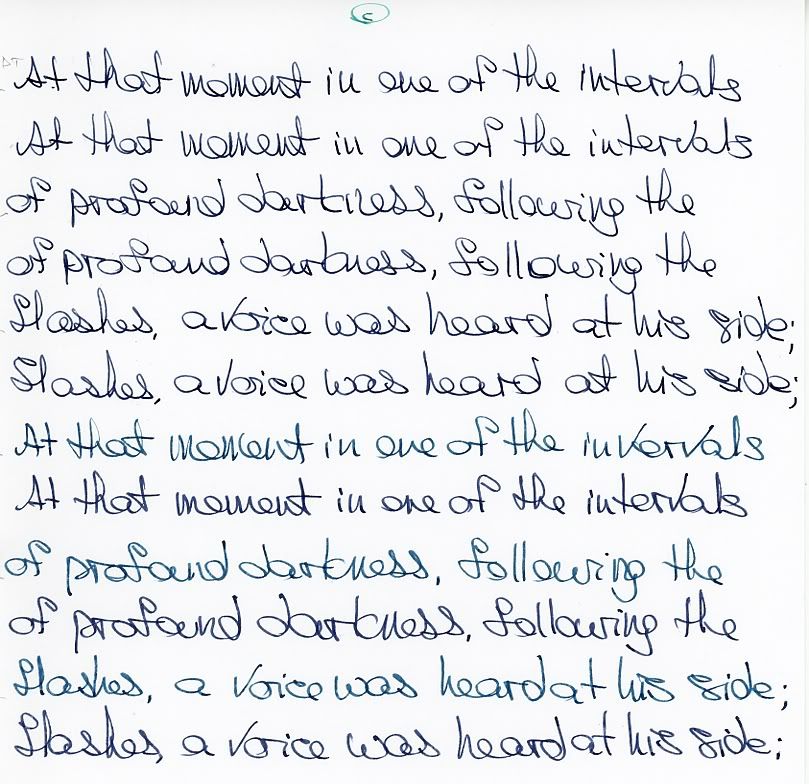 At that moment in one of the intervals
At that moment in one of the intervals
of profound darkness, following the
of profound darkness, following the
flashes, a voice was heard at his side;
flashes, a voice was heard at his side;
At that moment in one of the intervals
At that moment in one of the intervals
of profound darkness, following the
of profound darkness, following the
flashes, a voice was heard at his side;
flashes, a voice was heard at his side;